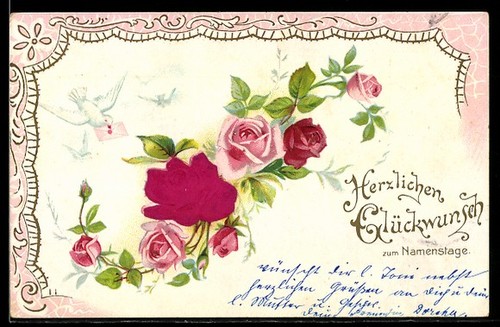 Herzlichen
Glückwunsch
zum Namenstage.
wünscht dir l. Toni nebst
herzlichen Grüßen an dich u dein
l. Mutter u.
Dein Dorcha.